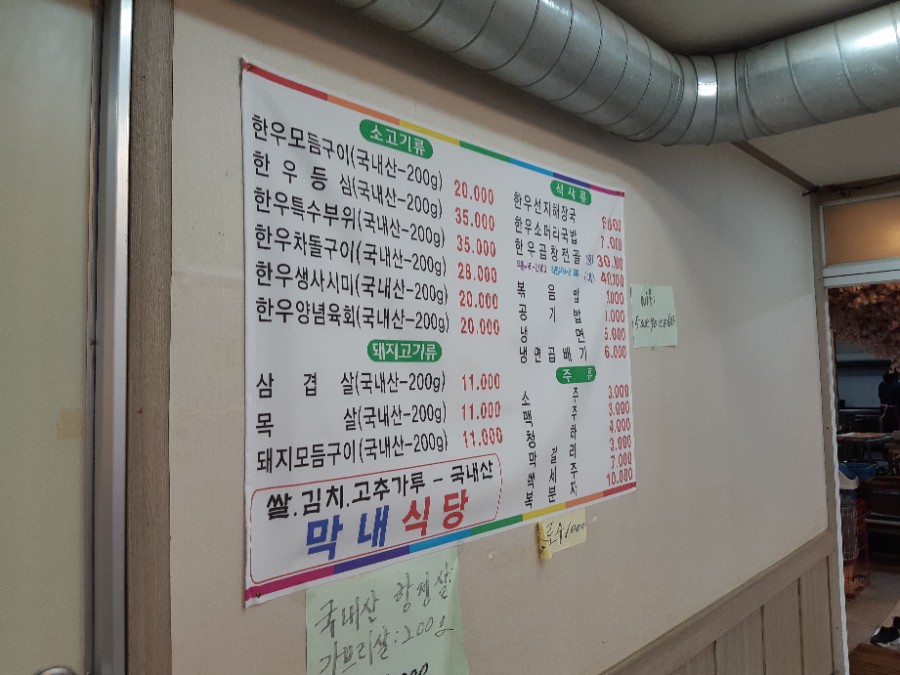 소고기류
한우모듬구이(국내산-200g) 20.000
한우등심(국내산-200g) 35.000
한우특수부위(국내산-200g) 35.000
한우차돌구이(국내산-200g) 28.000
한우생사시미(국내산-200g) 20.000
한우양념육회(국내산-200g) 20.000
돼지고기류
삼겹살(국내산-200g) 11.000
목살(국내산-200g) 11.000
돼지모듬구이(국내산-200g) 11.000
쌀.김치.고추가루 - 국내산
막내식당
식사류
한우선지해장국
한우소머리국밥 7.000
한우곱창전골 30.000
40.000
볶음밥
공기밥 1.000
냉면 5.000
냉면곱빼기 6.000
주류
소주 3.000
맥주 3.000
청하 4.000
막걸리 3.000
백세주 7.000
복분자 10.000
국내산 항정살
가브리살:200g